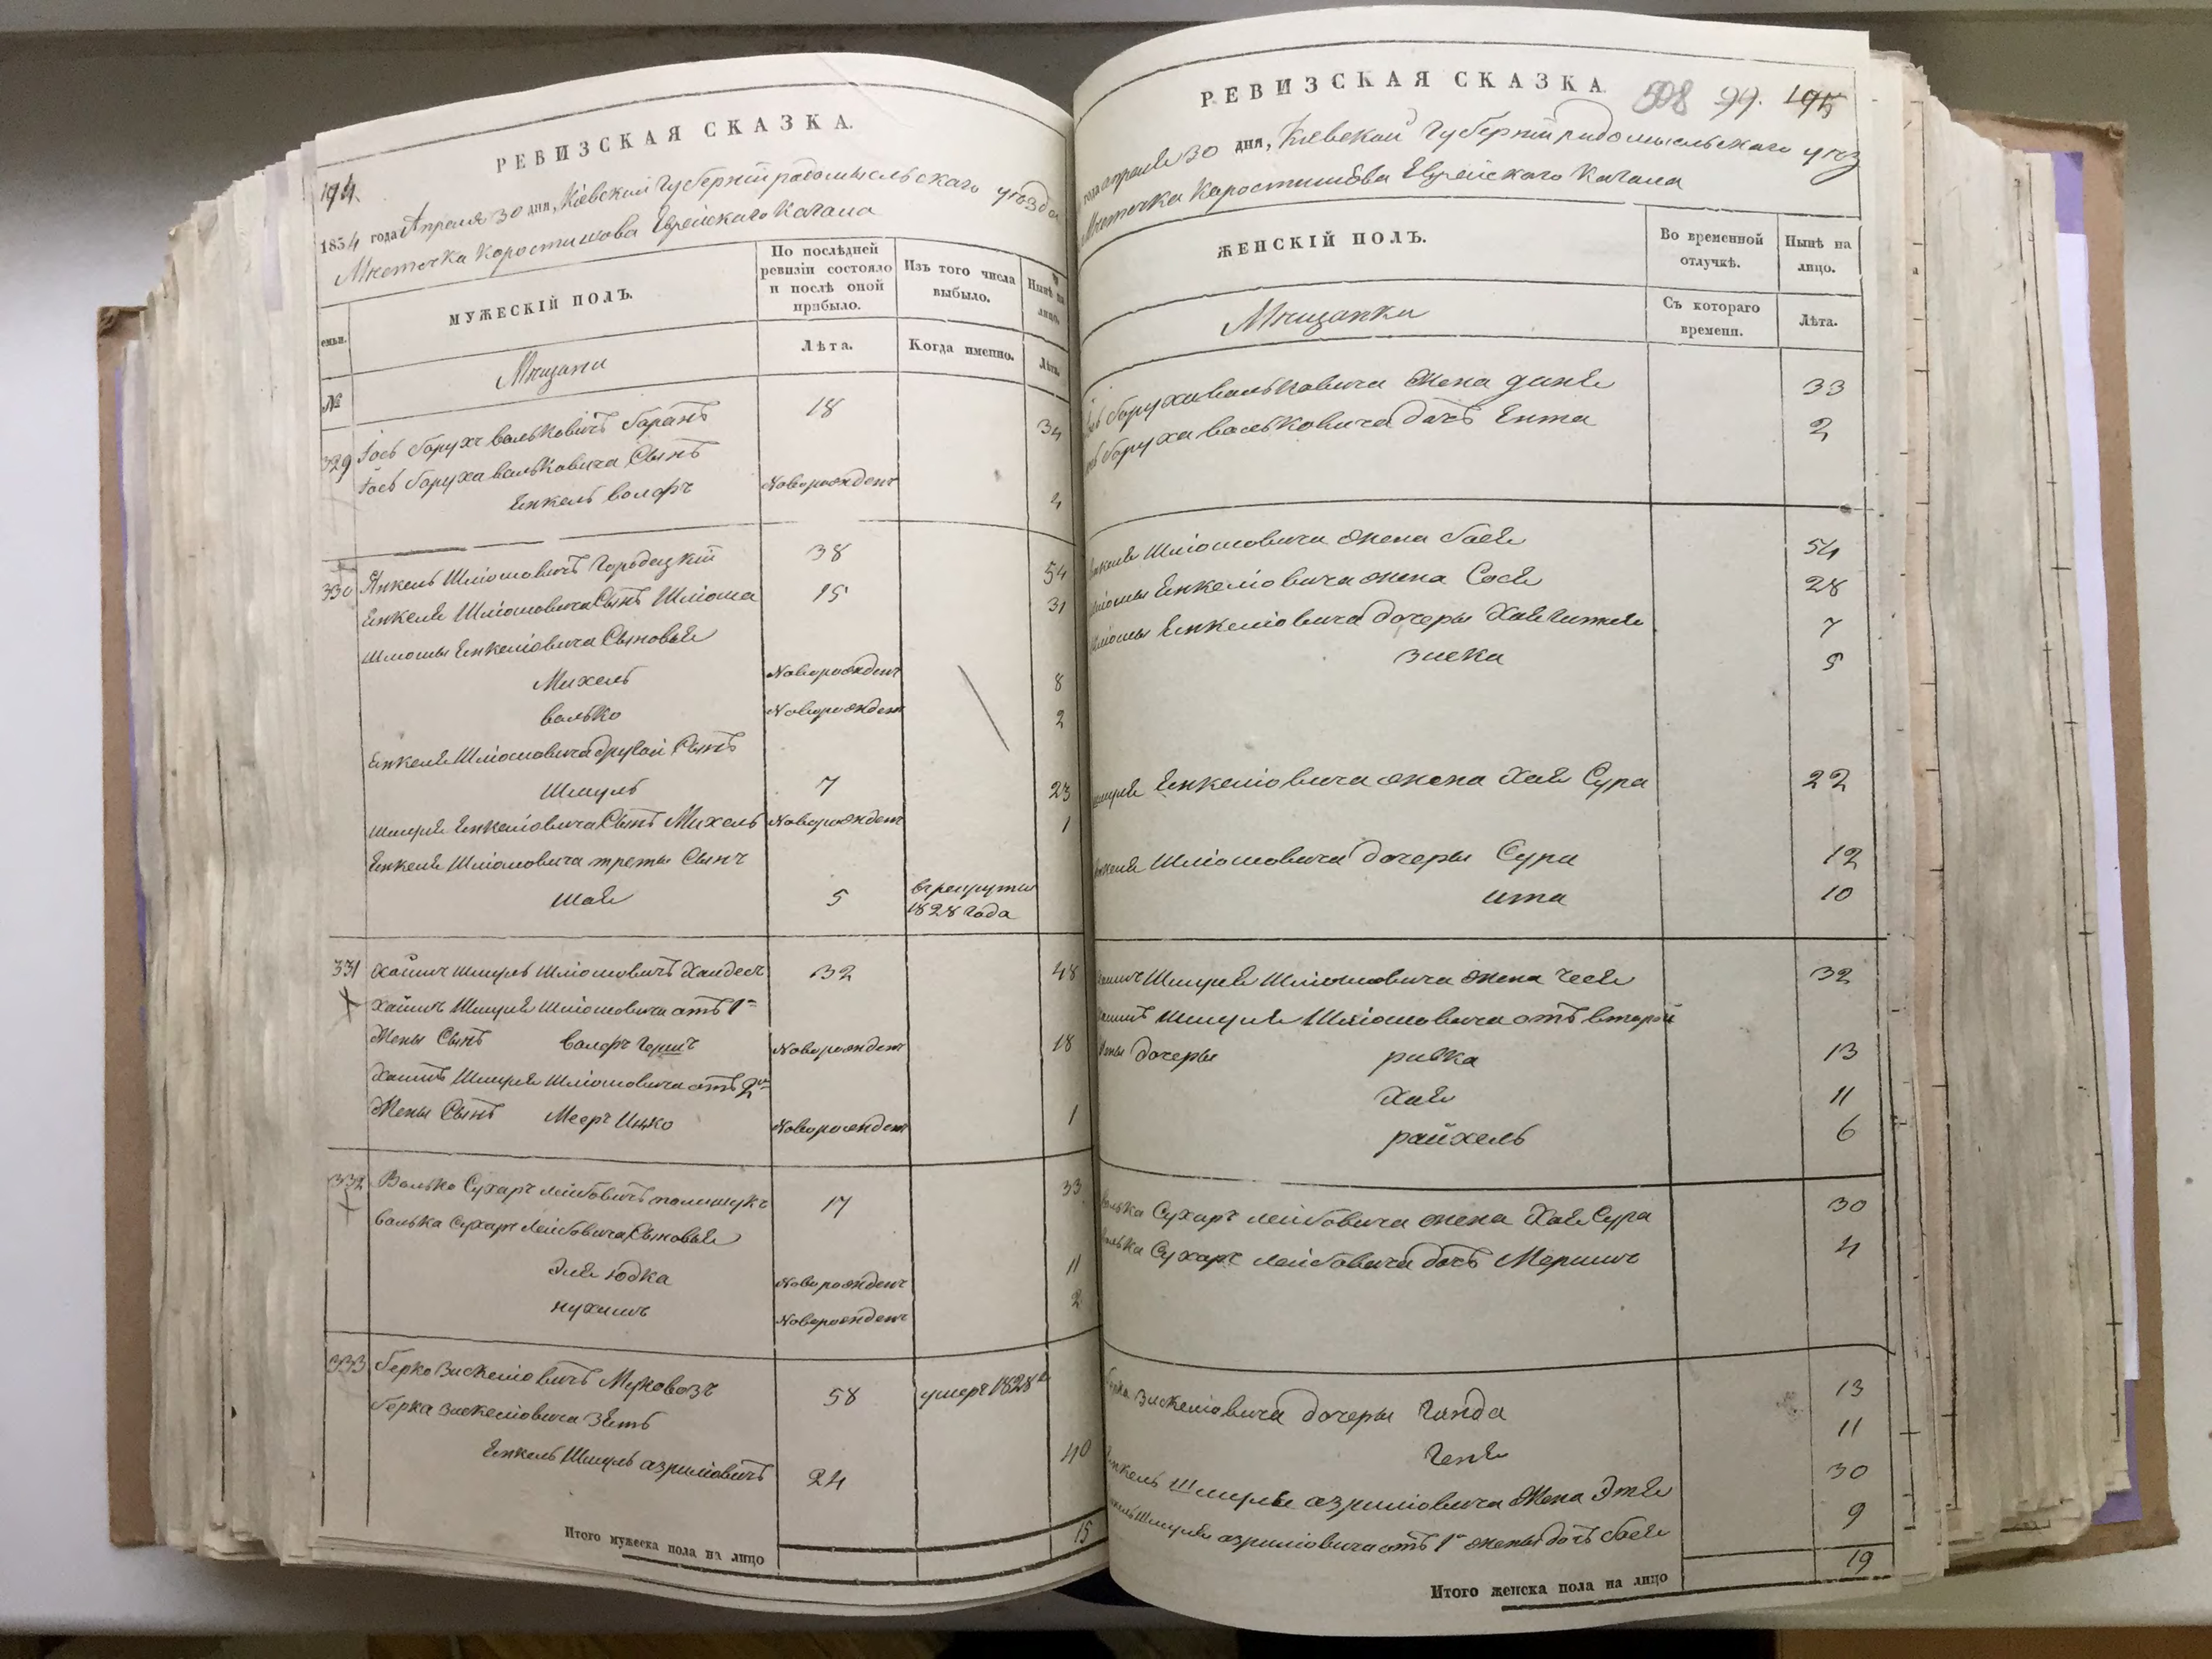 РЕВИЗСКАЯ СКАЗКА.
194.
1834 года Апреля 30 дня, Кіевской Губерніи радомысльскаго уѣзда
Мѣстечка Коростишова Еврейскаго Кагала
МУЖЕСКІЙ ПОЛЪ.
По послѣдней ревизіи состояло и послѣ оной прибыло.
Изъ того числа выбыло.
Нынѣ на лицо.
семьи.
№
Мѣщани
Лѣта.
Когда именно.
Лѣта.
329 Іось борухъ вальковичъ баранъ 18 34
Іось боруха вальковича Сынъ
Янкель волфъ Новорожденъ 4
330 Янкель Шліомовичъ Городецкій 38 54
Янкеля Шліомовича Сынъ Шліома 15 31
Шліомы Янкеліовича Сыновья
Михель Новорожденъ 8
валько Новорожденъ 2
Янкеля Шліомовича другой Сынъ
Шмуль 7 23
Шмуля Янкеліовича Сынъ Михель Новорожденъ 1
Янкеля Шліомовича треты Сынъ
Шая 5 врекруты
1828 года
331 Хаимъ Шмуль Шліомовичъ 32 48
Хаимъ Шмуля Шліомовича отъ 1й
Жены Сынъ волфъ Гершъ Новорожденъ 18
Хаимъ Шмуля Шліомовича отъ 2й
Жены Сынъ Мееръ Ицко Новорожденъ 1
332 Валько Сухаръ лейбовичъ полищукъ 17 33
валька Сухаръ Лейбовича Сыновья
Эля юдка Новорожденъ 11
нухимъ Новорожденъ 2
333 берко Зискеліовичъ Муковозъ 58 умеръ 1828
берка Зискеліовича Зять
Янкель Шмуль азриліовичъ 24 40
Итого мужеска пола на лицо 15
РЕВИЗСКАЯ СКАЗКА
508 99. 195
года апреля 30 дня, Кіевской Губерніи радомысльскаго уѣз
Мѣстечка Коростишова Еврейскаго Кагала
ЖЕНСКІЙ ПОЛЪ.
Во временной отлучкѣ.
Нынѣ на лицо.
Мѣщанки
Съ котораго времени.
Лѣта.
боруха вальковича жена 33
боруха вальковича дочь Ента 2
Янкеля Шліомовича жена бася 54
Шліомы Янкеліовича жена Сося 28
Шліомы Янкеліовича дочеры 7
Зиска 5
Шмуля Янкеліовича жена Хая Сура 22
Янкеля Шліомовича дочеры Сура 12
ита 10
Хаимъ Шмуля Шліомовича жена 32
Хаимъ Шмуля Шліомовича отъ второй
жены дочеры ривка 13
Хая 11
райхель 6
валька Сухаръ лейбовича жена Хая Сура 30
валька Сухаръ лейбовича дочь Меримъ 4
берка Зискеліовича дочеры 13
Геня 11
Янкель Шмуля азриліовича жена Этя 30
Янкель Шмуля азриліовича отъ 1й жены дочь бася 9
Итого женска пола на лицо 19